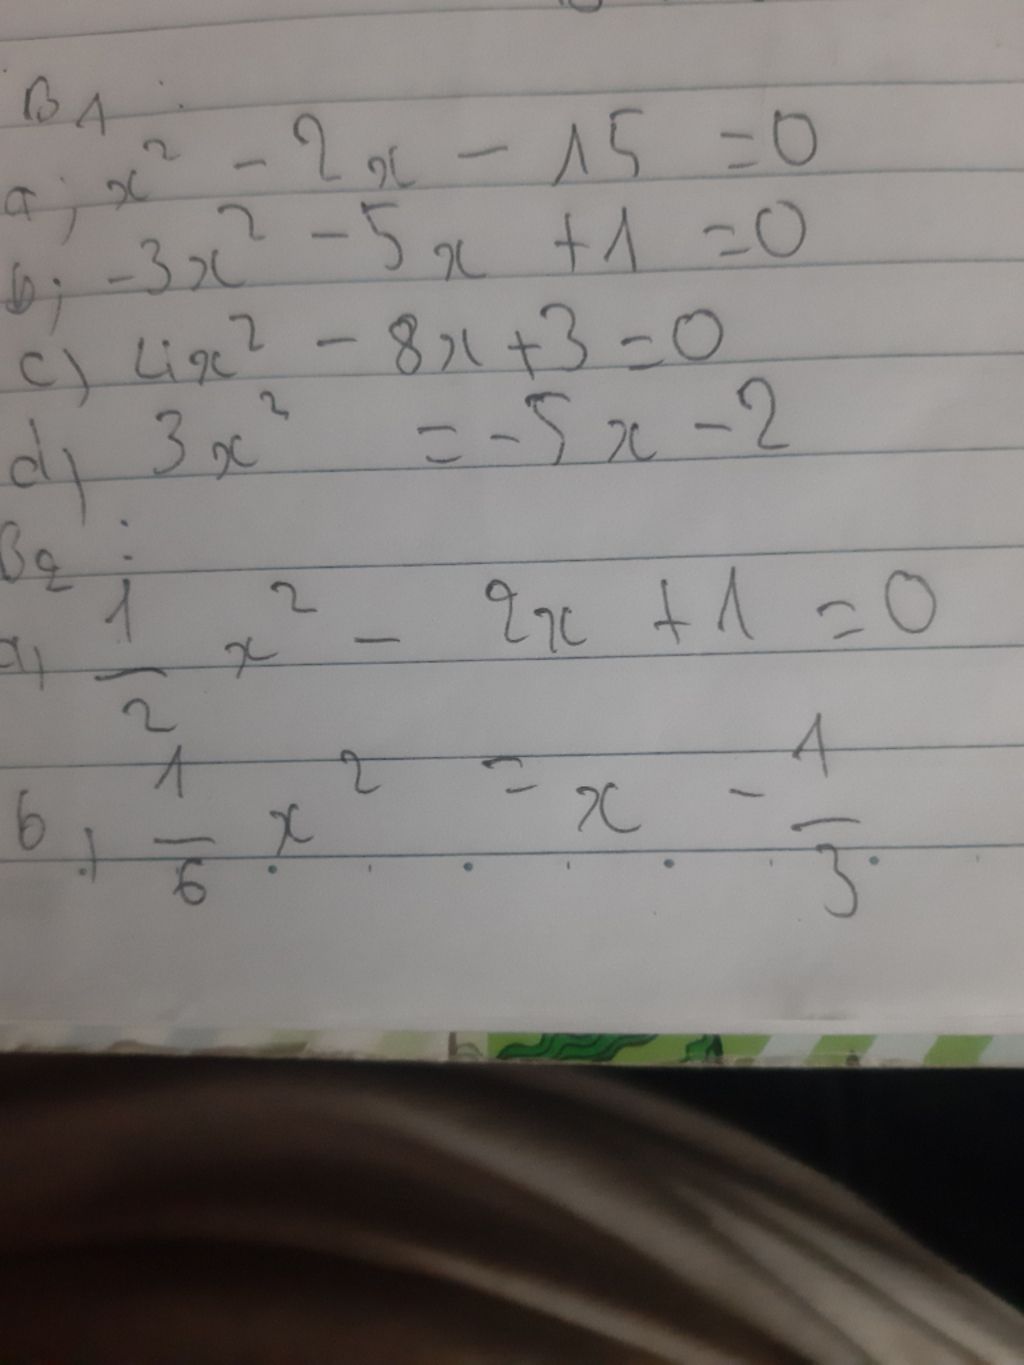 B1:
a; x² - 2x - 15 = 0
b; -3x² - 5x + 1 = 0
c) 4x² - 8x + 3 = 0
d) 3x² = -5x - 2
B2:
a, 1/2 x² - 2x + 1 = 0
b,) 1/6 x² = x - 1/3